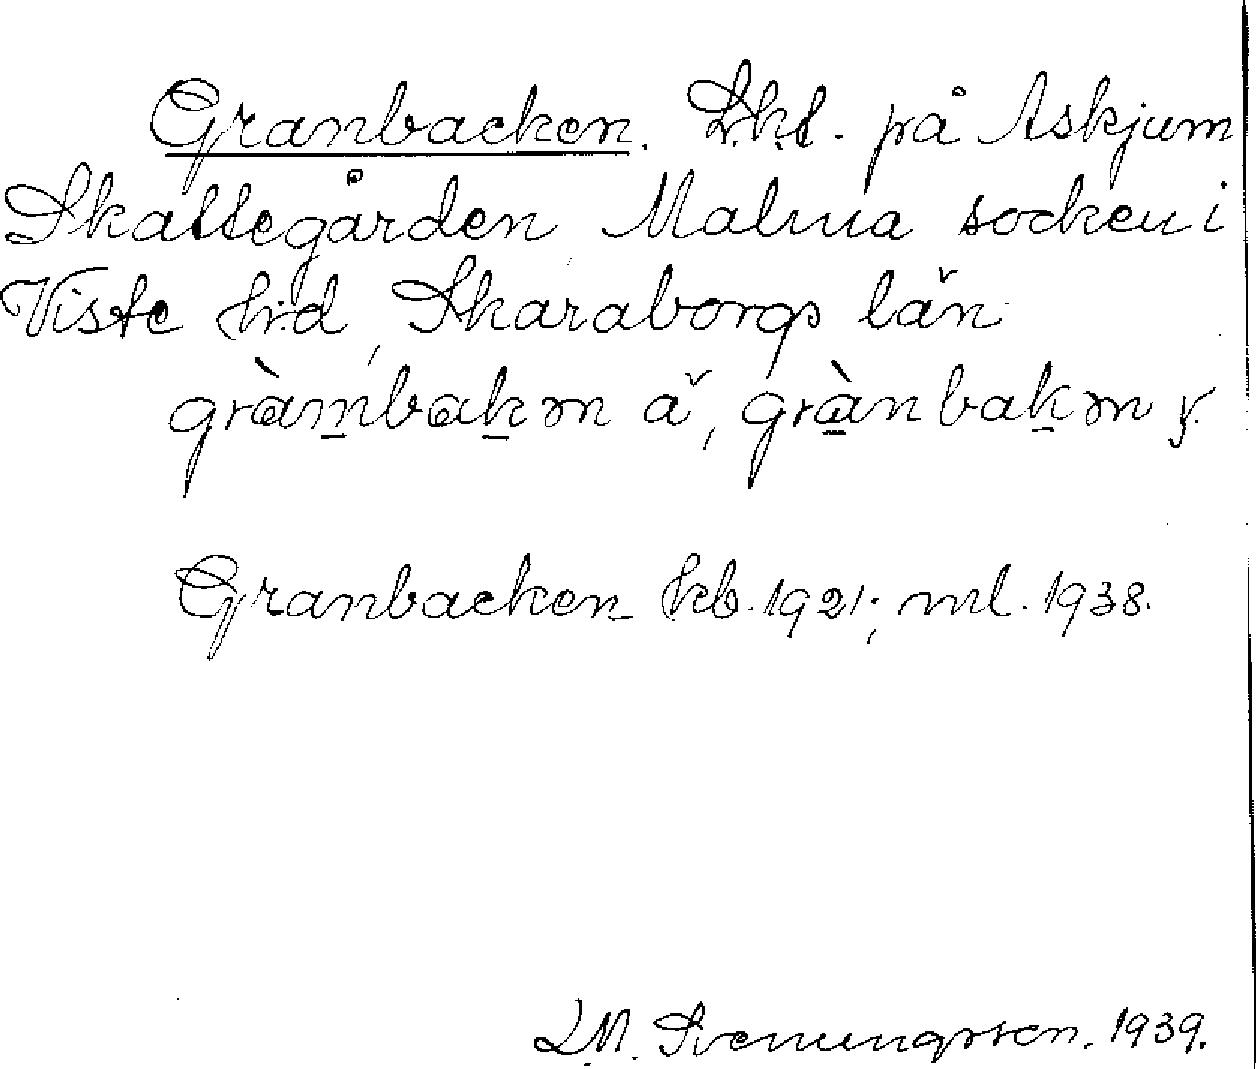 Granbacken. L.k.t. på Askjum
Skattegården Malma socken i
Viste h:d, Skaraborgs län
gràmbakən ä, grànbakən y.
Granbacken kb. 1921; ml. 1938.
L.M. Svenungsson. 1939.